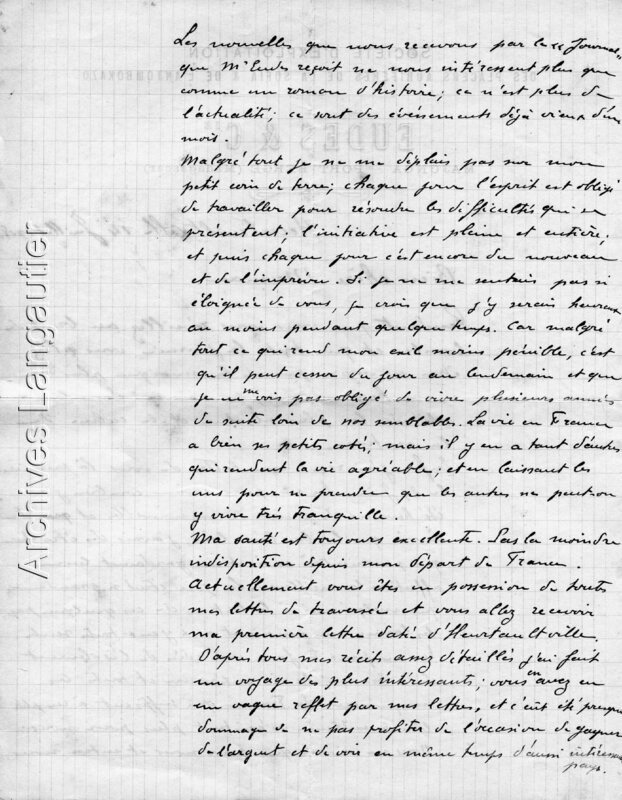 Les nouvelles que nous recevons par le "Journal"
que Mr Eudes reçoit ne nous intéressent plus que
comme un roman d'histoire; ce n'est plus de
l'actualité; ce sont des événements déjà vieux d'un
mois.
Malgré tout je ne me déplais pas sur mon
petit coin de terre; chaque jour l'esprit est obligé
de travailler pour résoudre les difficultés qui se
présentent; l'initiative est pleine et entière,
et puis chaque jour c'est encore du nouveau
et de l'imprévu. Si je ne me sentais pas si
éloigné de vous, je crois que j'y serais heureux
au moins pendant quelque temps. Car malgré
tout ce qui rend mon exil moins pénible, c'est
qu'il peut cesser du jour au lendemain et que
je ne me vois pas obligé de vivre plusieurs années
de suite loin de nos semblables. La vie en France
a bien ses petits cotés; mais il y en a tant d'autres
qui rendent la vie agréable; et en laissant les
uns pour ne prendre que les autres ne peut-on
y vivre très tranquille.
Ma santé est toujours excellente. Pas la moindre
indisposition depuis mon départ de France.
Actuellement vous êtes en possession de toutes
mes lettres de traversée et vous allez recevoir
ma première lettre datée d'Heurtaultville.
D'après tous mes récits assez détaillés j'ai fait
un voyage des plus intéressants; vous en avez eu
un vague reflet par mes lettres, et c'eut été presque
dommage de ne pas profiter de l'occasion de gagner
de l'argent et de voir en même temps d'aussi intéressants
pays.
Archives Langautier
EUDES & C